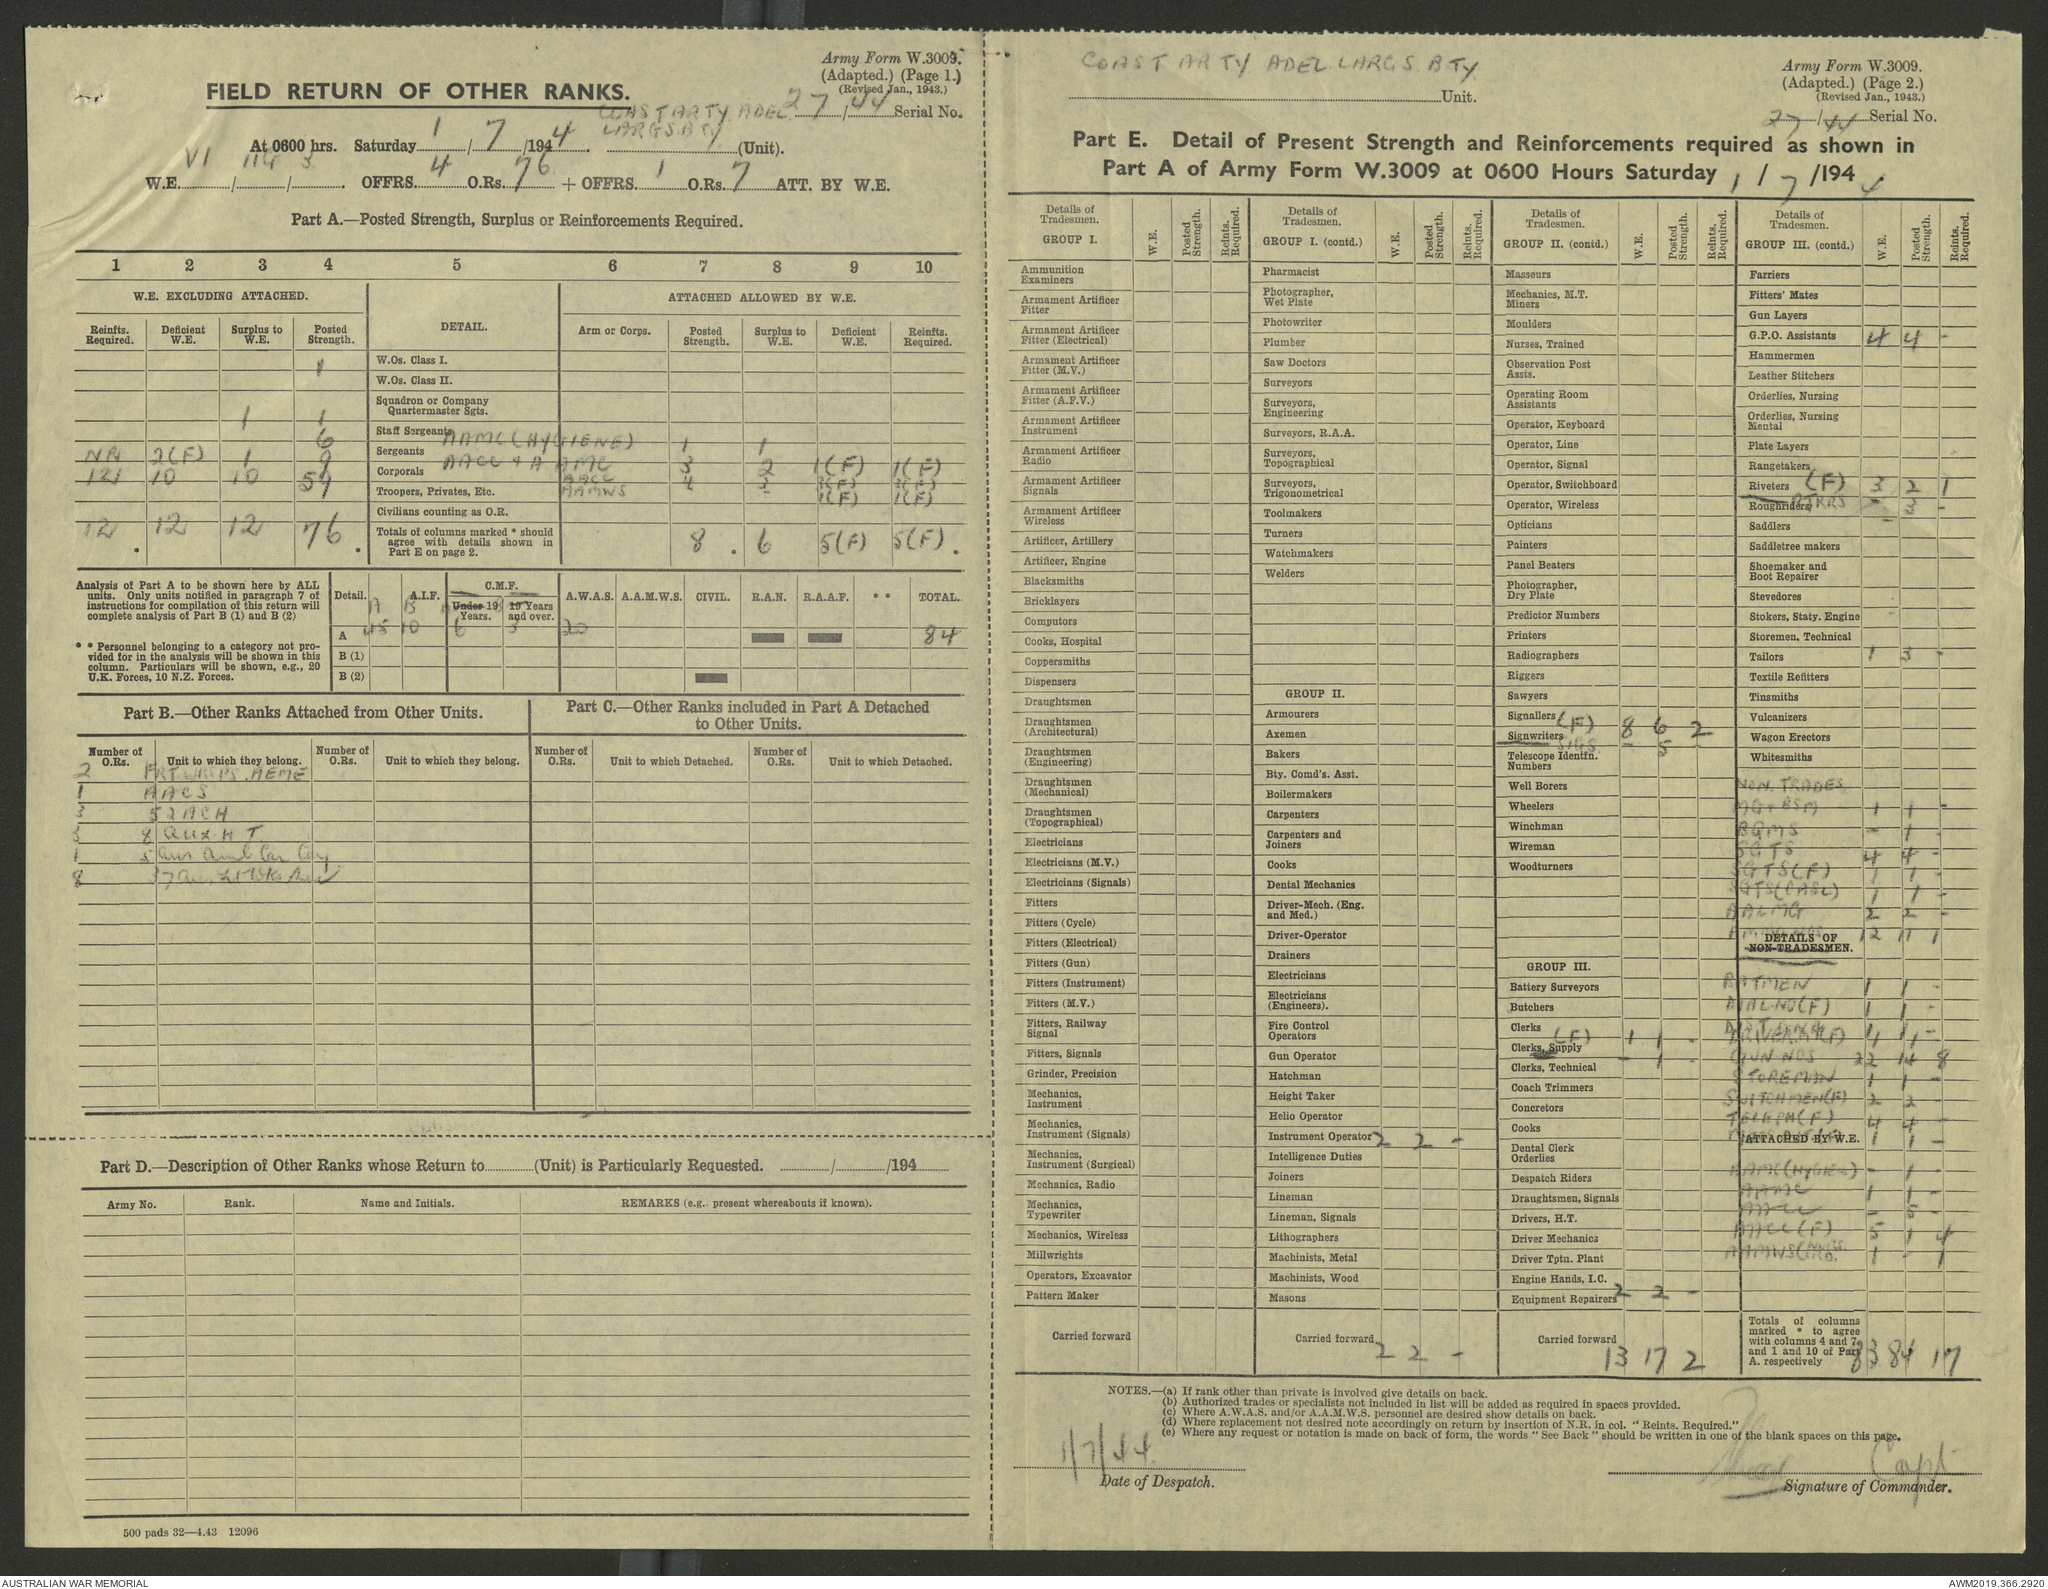 Army Form W.3009.
(Adapted.) (Page 1.)
(Revised Jan., 1943.)
FIELD RETURN OF OTHER RANKS.
COAST ARTY ADEL 27/44 Serial No.
LARGS BTY
At 0600 hrs. Saturday 1/7/1944. (Unit).
W.E. VI/114/3. OFFRS. 4 O.Rs. 76 + OFFRS. 1 O.Rs. 7 ATT. BY W.E.
Part A.—Posted Strength, Surplus or Reinforcements Required.
1 2 3 4 5 6 7 8 9 10
W.E. EXCLUDING ATTACHED. DETAIL. ATTACHED ALLOWED BY W.E.
Reinfts. Required. Deficient W.E. Surplus to W.E. Posted Strength. Arm or Corps. Posted Strength. Surplus to W.E. Deficient W.E. Reinfts. Required.
W.Os. Class I.
1 W.Os. Class II.
Squadron or Company Quartermaster Sgts. 1 1
Staff Sergeants
6 Sergeants AAMC (HYGIENE) 1 1
NR 2(F) 1 9 Corporals AACC + AAMC 3 2 1(F) 1(F)
121 10 10 59 Troopers, Privates, Etc. AACC 4 3
AAMWS 1(F) 1(F)
Civilians counting as O.R.
12 12 12 76 Totals of columns marked * should agree with details shown in Part E on page 2. 8 6 5(F) 5(F)
Analysis of Part A to be shown here by ALL
units. Only units notified in paragraph 7 of
instructions for compilation of this return will
complete analysis of Part B (1) and B (2)
* * Personnel belonging to a category not pro-
vided for in the analysis will be shown in this
column. Particulars will be shown, e.g., 20
U.K. Forces, 10 N.Z. Forces.
Detail. A.I.F. C.M.F. Under 19 Years. 19 Years and over. A.W.A.S. A.A.M.W.S. CIVIL. R.A.N. R.A.A.F. * * TOTAL.
A B
A 45 10 6 3 20 84
B (1)
B (2)
Part B.—Other Ranks Attached from Other Units.
Number of O.Rs. Unit to which they belong. Number of O.Rs. Unit to which they belong.
2 FRTWKPS AEME
1 AACS
3 52 ACH
3 8 AUX H T
1 5 Aus Amb Car Coy
8
Part C.—Other Ranks included in Part A Detached
to Other Units.
Number of O.Rs. Unit to which Detached. Number of O.Rs. Unit to which Detached.
Part D.—Description of Other Ranks whose Return to (Unit) is Particularly Requested. / /194
Army No. Rank. Name and Initials. REMARKS (e.g., present whereabouts if known).
500 pads 32—4.43 12096
COAST ARTY ADEL LARGS BTY
Unit.
Army Form W.3009.
(Adapted.) (Page 2.)
(Revised Jan., 1943.)
27/44 Serial No.
Part E. Detail of Present Strength and Reinforcements required as shown in
Part A of Army Form W.3009 at 0600 Hours Saturday 1/7/1944
Details of Tradesmen. W.E. Posted Strength. Reints. Required.
GROUP I.
Ammunition Examiners
Armament Artificer Fitter
Armament Artificer Fitter (Electrical)
Armament Artificer Fitter (M.V.)
Armament Artificer Fitter (A.F.V.)
Armament Artificer Instrument
Armament Artificer Radio
Armament Artificer Signals
Armament Artificer Wireless
Artificer, Artillery
Artificer, Engine
Blacksmiths
Bricklayers
Computors
Cooks, Hospital
Coppersmiths
Dispensers
Draughtsmen
Draughtsmen (Architectural)
Draughtsmen (Engineering)
Draughtsmen (Mechanical)
Draughtsmen (Topographical)
Electricians
Electricians (M.V.)
Electricians (Signals)
Fitters
Fitters (Cycle)
Fitters (Electrical)
Fitters (Gun)
Fitters (Instrument)
Fitters (M.V.)
Fitters, Railway Signal
Fitters, Signals
Grinder, Precision
Mechanics, Instrument
Mechanics, Instrument (Signals)
Mechanics, Instrument (Surgical)
Mechanics, Radio
Mechanics, Typewriter
Mechanics, Wireless
Millwrights
Operators, Excavator
Pattern Maker
Carried forward
Details of Tradesmen. W.E. Posted Strength. Reints. Required.
GROUP I. (contd.)
Pharmacist
Photographer, Wet Plate
Photowriter
Plumber
Saw Doctors
Surveyors
Surveyors, Engineering
Surveyors, R.A.A.
Surveyors, Topographical
Surveyors, Trigonometrical
Toolmakers
Turners
Watchmakers
Welders
GROUP II.
Armourers
Axemen
Bakers
Bty. Comd's. Asst.
Boilermakers
Carpenters
Carpenters and Joiners
Cooks
Dental Mechanics
Driver-Mech. (Eng. and Med.)
Driver-Operator
Drainers
Electricians
Electricians (Engineers).
Fire Control Operators
Gun Operator
Hatchman
Height Taker
Helio Operator
Instrument Operator 2 2 -
Intelligence Duties
Joiners
Lineman
Lineman, Signals
Lithographers
Machinists, Metal
Machinists, Wood
Masons
Carried forward 2 2 -
Details of Tradesmen. W.E. Posted Strength. Reints. Required.
GROUP II. (contd.)
Masseurs
Mechanics, M.T.
Miners
Moulders
Nurses, Trained
Observation Post Assts.
Operating Room Assistants
Operator, Keyboard
Operator, Line
Operator, Signal
Operator, Switchboard
Operator, Wireless
Opticians
Painters
Panel Beaters
Photographer, Dry Plate
Predictor Numbers
Printers
Radiographers
Riggers
Sawyers
Signallers (F) 8 6 2
Signwriters SIGS - 5 -
Telescope Identfn. Numbers
Well Borers
Wheelers
Winchman
Wireman
Woodturners
GROUP III.
Battery Surveyors
Butchers
Clerks (F) 1 1 -
Clerks, Supply - 1 -
Clerks, Technical
Coach Trimmers
Concretors
Cooks
Dental Clerk Orderlies
Despatch Riders
Draughtsmen, Signals
Drivers, H.T.
Driver Mechanics
Driver Tptn. Plant
Engine Hands, I.C.
Equipment Repairers 2 2 -
Carried forward 13 17 2
Details of Tradesmen. W.E. Posted Strength. Reints. Required.
GROUP III. (contd.)
Farriers
Fitters' Mates
Gun Layers
G.P.O. Assistants 4 4 -
Hammermen
Leather Stitchers
Orderlies, Nursing
Orderlies, Nursing Mental
Plate Layers
Rangetakers
Riveters (F) 3 2 1
Roughriders - 3 -
Saddlers
Saddletree makers
Shoemaker and Boot Repairer
Stevedores
Stokers, Staty. Engine
Storemen, Technical
Tailors 1 3 -
Textile Refitters
Tinsmiths
Vulcanizers
Wagon Erectors
Whitesmiths
NON TRADES
MG + BSM 1 1 -
BQMS - 1 -
SGTS 4 4 -
SGTS (F) 1 1 -
SGTS (CASL) 1 1 -
2 2 -
12 11 1
DETAILS OF
NON-TRADESMEN.
BATMEN 1 1 -
DIAL NO (F) 1 1 -
1 1 -
GUN NOS 22 14 8
STOREMAN 1 1 -
SWITCHMEN (F) 2 2 -
TELEPH (F) 4 4 -
ATTACHED BY W.E. 1 1 -
AAMC (HYGIENE) - 1 -
AAMC 1 1 -
AACC - 5 -
AACC (F) 5 1 4
AAMWS 1 - 1
Totals of columns marked * to agree with columns 4 and 7 and 1 and 10 of Part A. respectively 83 84 17
NOTES.—(a) If rank other than private is involved give details on back.
(b) Authorized trades or specialists not included in list will be added as required in spaces provided.
(c) Where A.W.A.S. and/or A.A.M.W.S. personnel are desired show details on back.
(d) Where replacement not desired note accordingly on return by insertion of N.R. in col. "Reints. Required."
(e) Where any request or notation is made on back of form, the words "See Back" should be written in one of the blank spaces on this page.
1/7/44.
Date of Despatch.
Capt
Signature of Commander.
AUSTRALIAN WAR MEMORIAL
AWM2019.366.2920